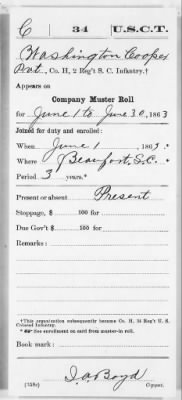 C | 34 | U.S.C.T.
Washington Cooper
Pvt., Co. H, 2 Reg't S. C. Infantry.†
Appears on
Company Muster Roll
for June 1 to June 30, 1863
Joined for duty and enrolled:
When June 1, 1863.*
Where Beaufort, S.C. *
Period 3 years.*
Present or absent Present
Stoppage, $ 100 for
Due Gov't $ 100 for
Remarks:
†This organization subsequently became Co. H, 34 Reg't U. S. Colored Infantry.
* See enrollment on card from muster-in roll.
Book mark:
J. A. Boyd
(358c) Copyist.